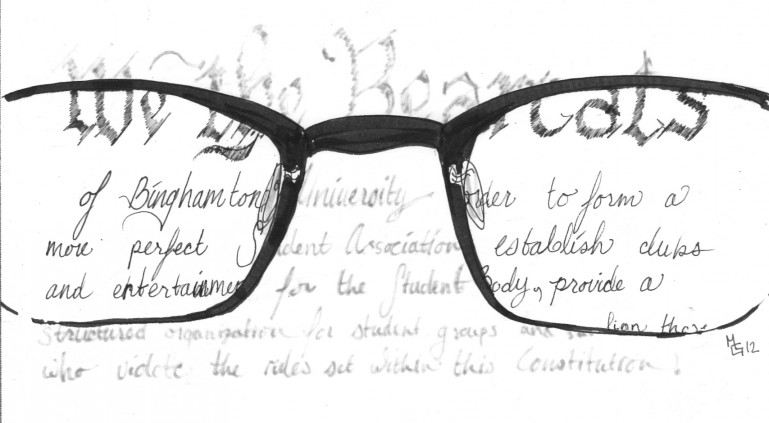 We the Bearcats
of Binghamton University order to form a
more perfect Student Association establish clubs
and entertainment for the Student Body, provide a
structured organization for student groups and those
who violate the rules set within this Constitution!
12